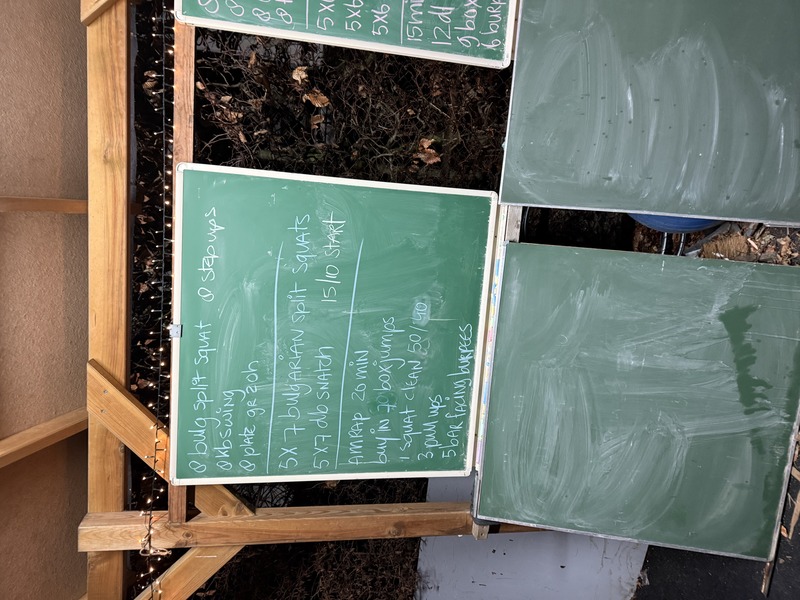 8 bulg split squat 8 step ups
8 kb swing
8 plate gr a oh
5x 7 bulgARiAN split squats
5x7 db SNATCH 15/10 START
AMRAP 20 min
buy in 72 boxjumps
1 squat clean 50/40
3 pull ups
5 bAR facing burpees
5x6
5x6
15 min
12 dl
9 box
6 burp